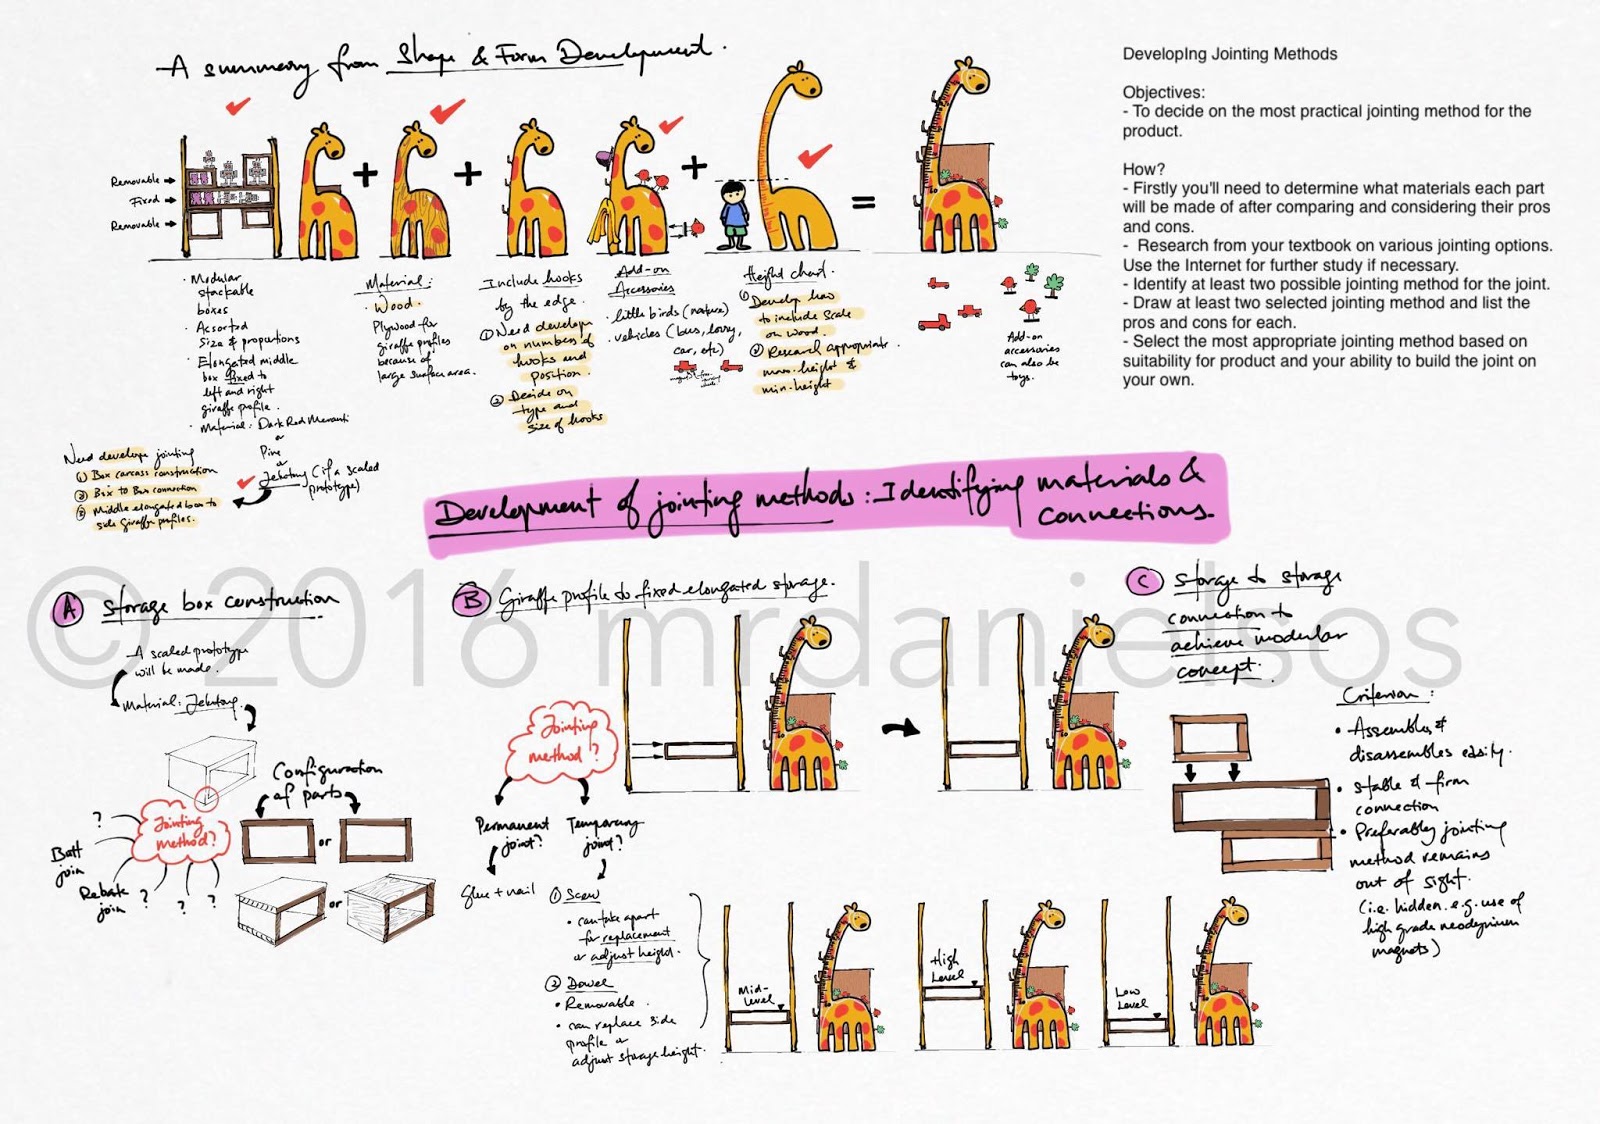 A summary from Shape & Form Development.
Removable
Fixed
Removable
• Modular
stackable
boxes
• Assorted
size & proportions
• Elongated middle
box fixed to
left and right
giraffe profile.
• Material: Dark Red Meranti
or
Pine
or
Jelutong (if a scaled
prototype)
Need develop jointing
① Box carcass construction
② Box to Box connection
③ Middle elongated box to
side giraffe profiles.
Material:
Wood.
Plywood for
giraffe profiles
because of
large surface area.
Include hooks
by the edge.
① Need develop
on numbers of
hooks and
position.
② Decide on
type and
size of hooks
Add-on
Accessories
• little birds (nature)
• vehicles (bus, lorry,
car, etc)
Height chart.
① Develop how
to include scale
on wood.
② Research appropriate
max. height &
min. height
Add-on
accessories
can also be
toys.
DevelopIng Jointing Methods
Objectives:
- To decide on the most practical jointing method for the
product.
How?
- Firstly you'll need to determine what materials each part
will be made of after comparing and considering their pros
and cons.
- Research from your textbook on various jointing options.
Use the Internet for further study if necessary.
- Identify at least two possible jointing method for the joint.
- Draw at least two selected jointing method and list the
pros and cons for each.
- Select the most appropriate jointing method based on
suitability for product and your ability to build the joint on
your own.
Development of jointing methods: Identifying materials &
connections.
© 2016 mrdanielsos
A Storage box construction
A scaled prototype
will be made.
Material: Jelutong.
Configuration
of parts
Jointing
method?
?
Butt
join
Rebate
join
?
?
?
or
or
B Giraffe profile to fixed elongated storage.
Jointing
method?
Permanent
joint?
Temporary
joint?
Glue + nail
① Screw
• can take apart
for replacement
or adjust height.
② Dowel
• Removable.
• can replace side
profile or
adjust storage height.
Mid-
Level
High
Level
Low
Level
C Storage to storage
connection to
achieve modular
concept.
Criterion:
• Assembles &
disassembles easily.
• Stable & firm
connection
• Preferably jointing
method remains
out of sight.
(i.e. hidden. e.g. use of
high grade neodymium
magnets)